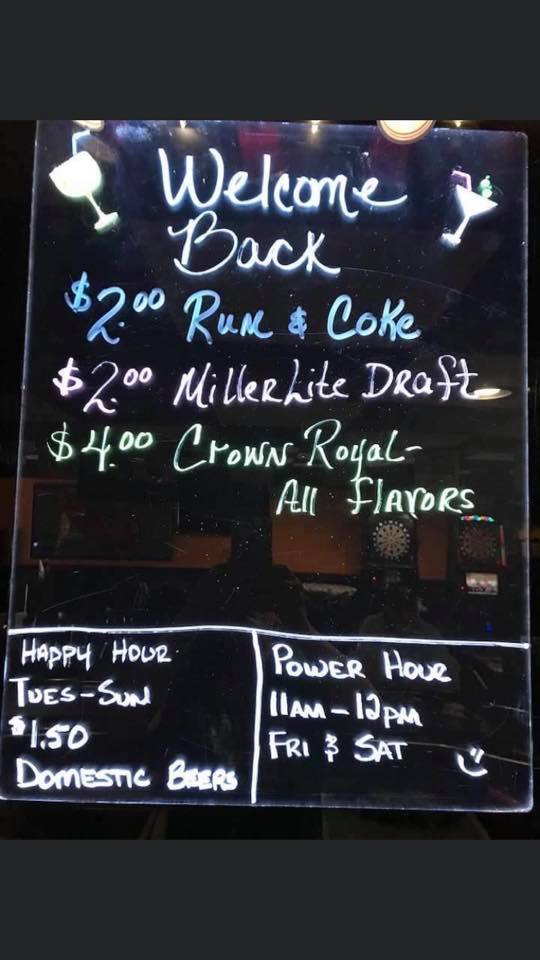 Welcome
Back
$2.00 Rum & Coke
$2.00 Miller Lite Draft
$4.00 Crown Royal-
All Flavors
Happy Hour
Tues-Sun
$1.50
Domestic Beers
Power Hour
11am-12pm
Fri & Sat